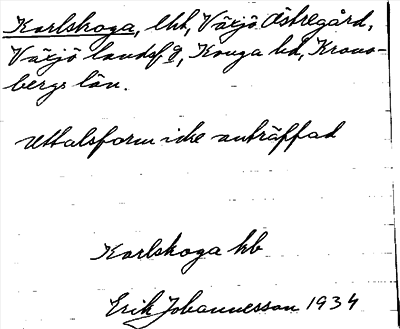 Karlskoga, lht, Växjö Östregård,
Växjö landsf g, Konga hd, Krono-
bergs län.
Uttalsform icke anträffad
Karlskoga hb
Erik Johannesson 1934